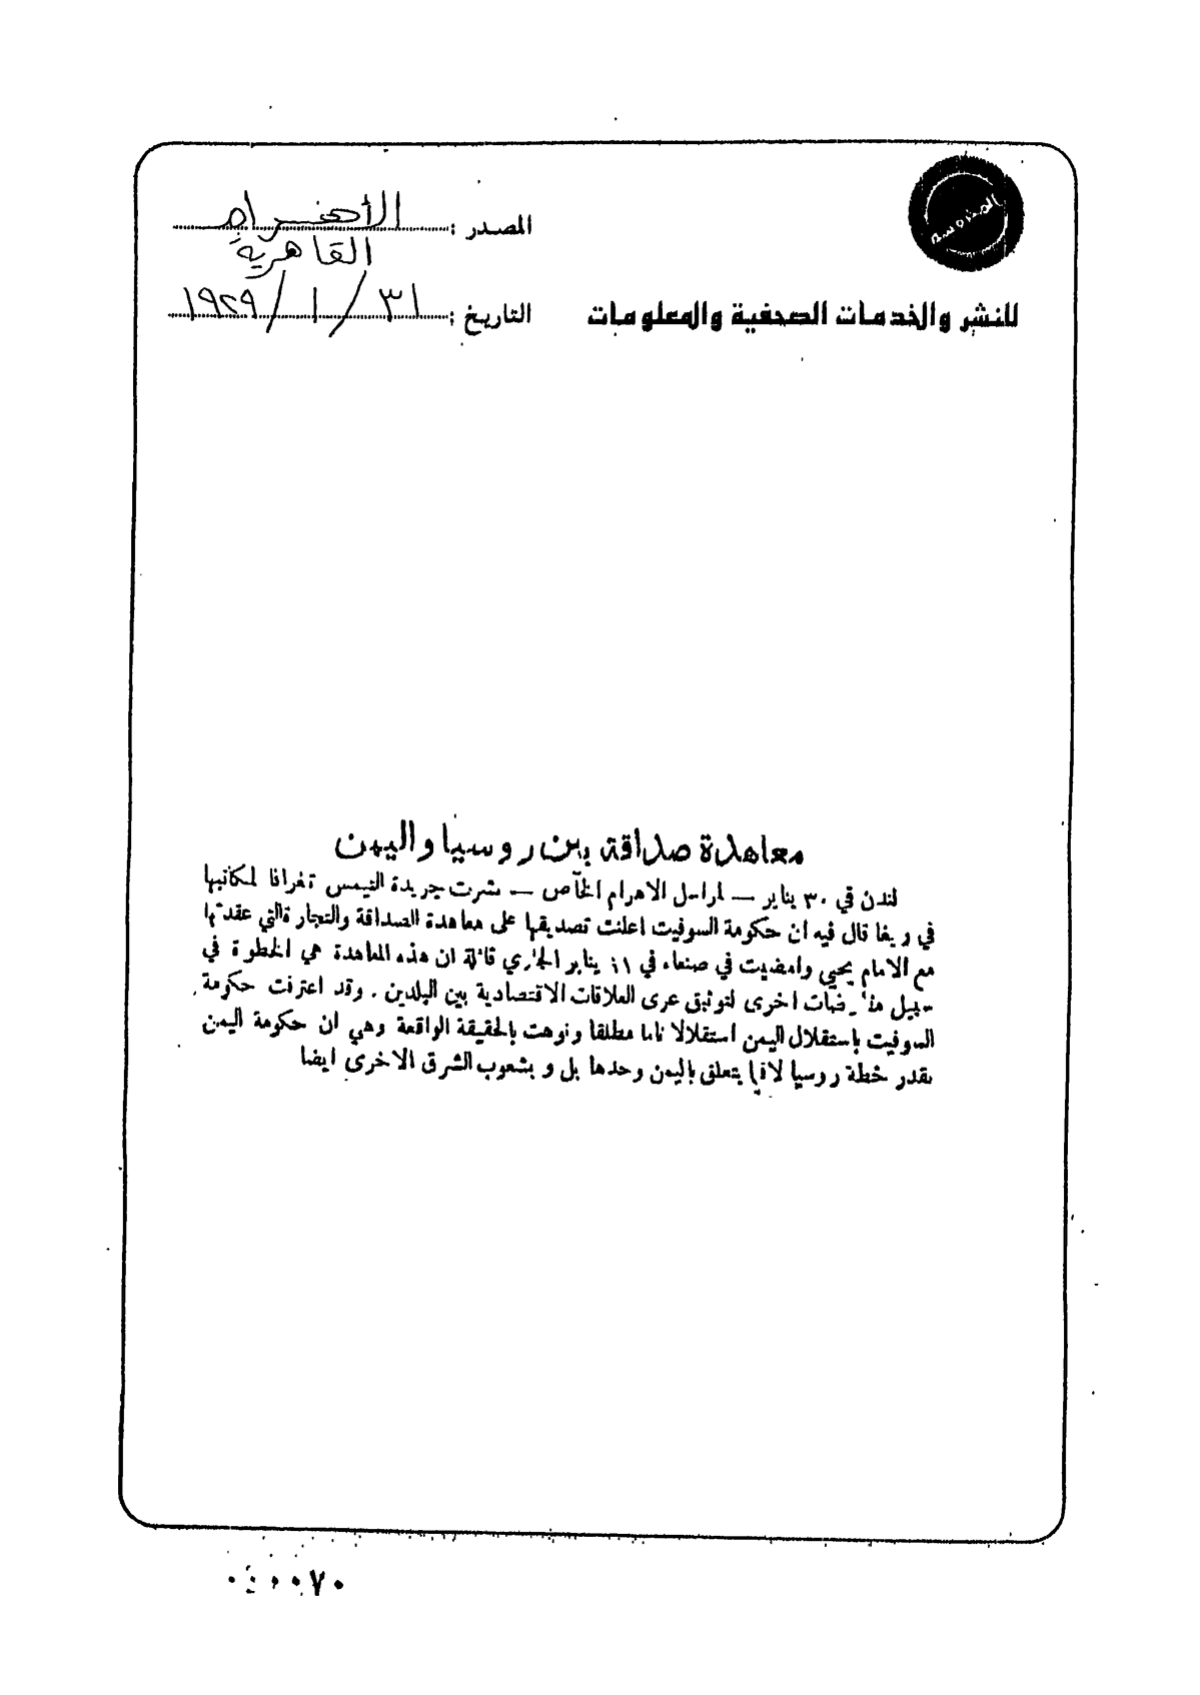 المصدر : الأهرام
القاهرية
للنشر والخدمات الصحفية والمعلومات
التاريخ : ٣١ / ١ / ١٩٢٩
معاهدة صداقة بين روسيا واليمن
لندن في ٣٠ يناير — لمراسل الاهرام الخاص — نشرت جريدة التيمس تلغرافا لمكاتبها
في ريغا قال فيه ان حكومة السوفيت اعلنت تصديقها على معاهدة الصداقة والتجارة التي عقدتها
مع الامام يحيي وامضيت في صنعاء في يناير الجاري قائلة ان هذه المعاهدة هي الخطوة في
سبيل اخرى لتوثيق عرى العلاقات الاقتصادية بين البلدين . وقد اعترفت حكومة
السوفيت باستقلال اليمن استقلالا تاما مطلقا ونوهت بالحقيقة الواقعة وهي ان حكومة اليمن
تقدر خطة روسيا لا فيما يتعلق باليمن وحدها بل وبشعوب الشرق الاخرى ايضا